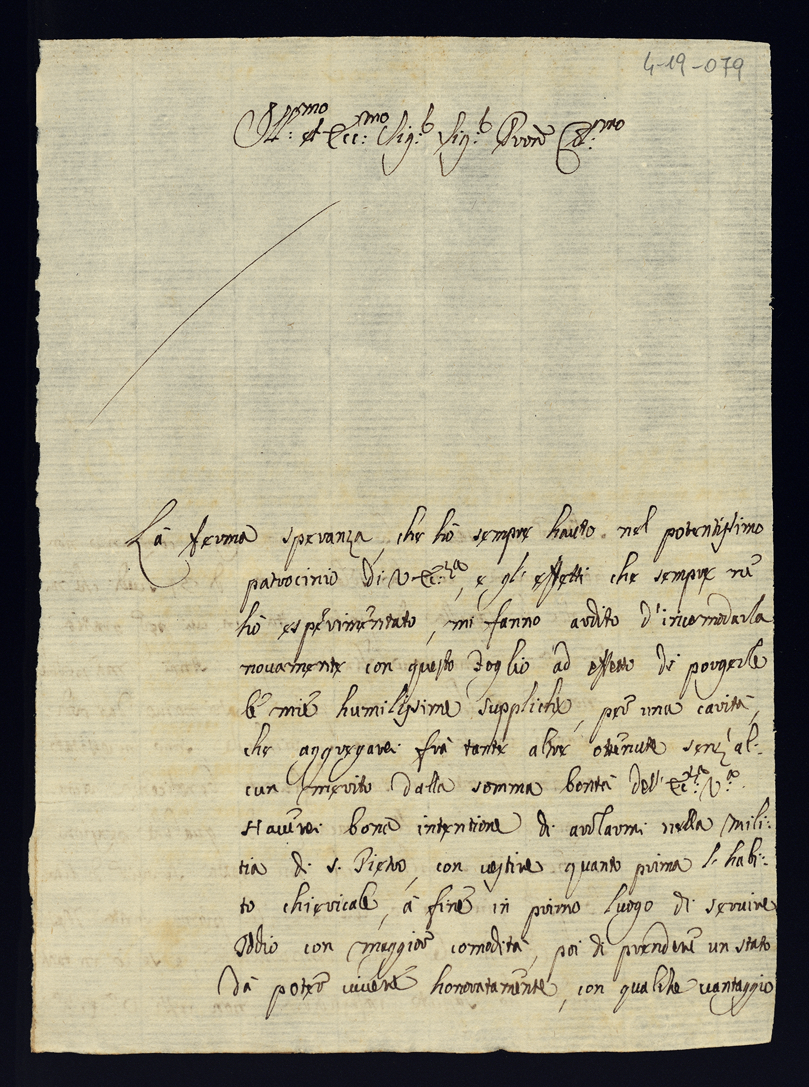 4-19-079
Ill:mo et Ecc:mo Sig:r Sig:r Pron Col:mo
Là ferma speranza, che hò sempre hauto nel potentissimo
patrocinio di V. Ecc:za, e gl' effetti che sempre ne
hò esperimentato, mi fanno ardito d'incomodarla
nouamente con questo foglio ad effetto di porgerle
le mie humilissime suppliche, per una carità,
che aggregarei frà tante altre ottenute senz' al:
cun merito dalla somma bontà dell' Ecc:za V:a.
Hauerei bona intentione di arolarmi nella Mili:
tia di S. Pietro, con uestire quanto prima l' habi:
to chiericale, à fine in primo luogo di seruire
Iddio con maggior comodità, poi di prendere un stato
dà poter uiuere honoratamente, con qualche uantaggio